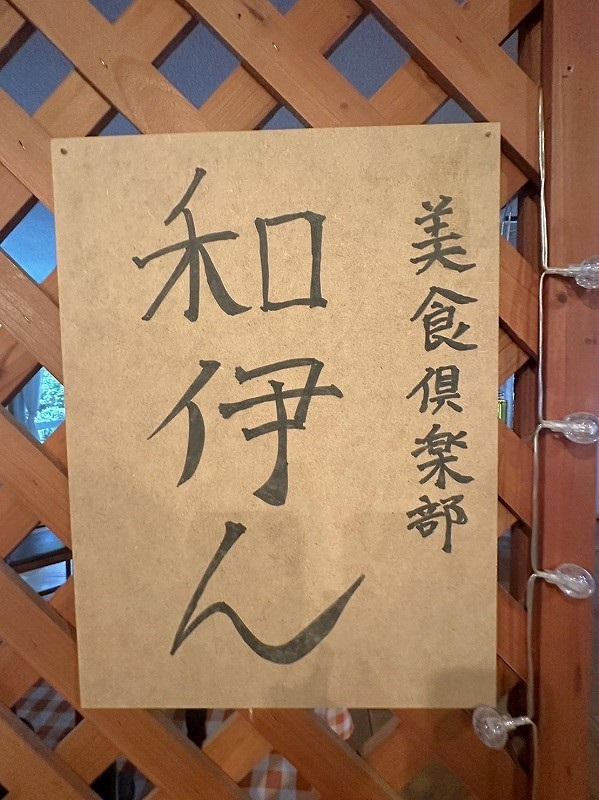 美食倶楽部
和伊ん